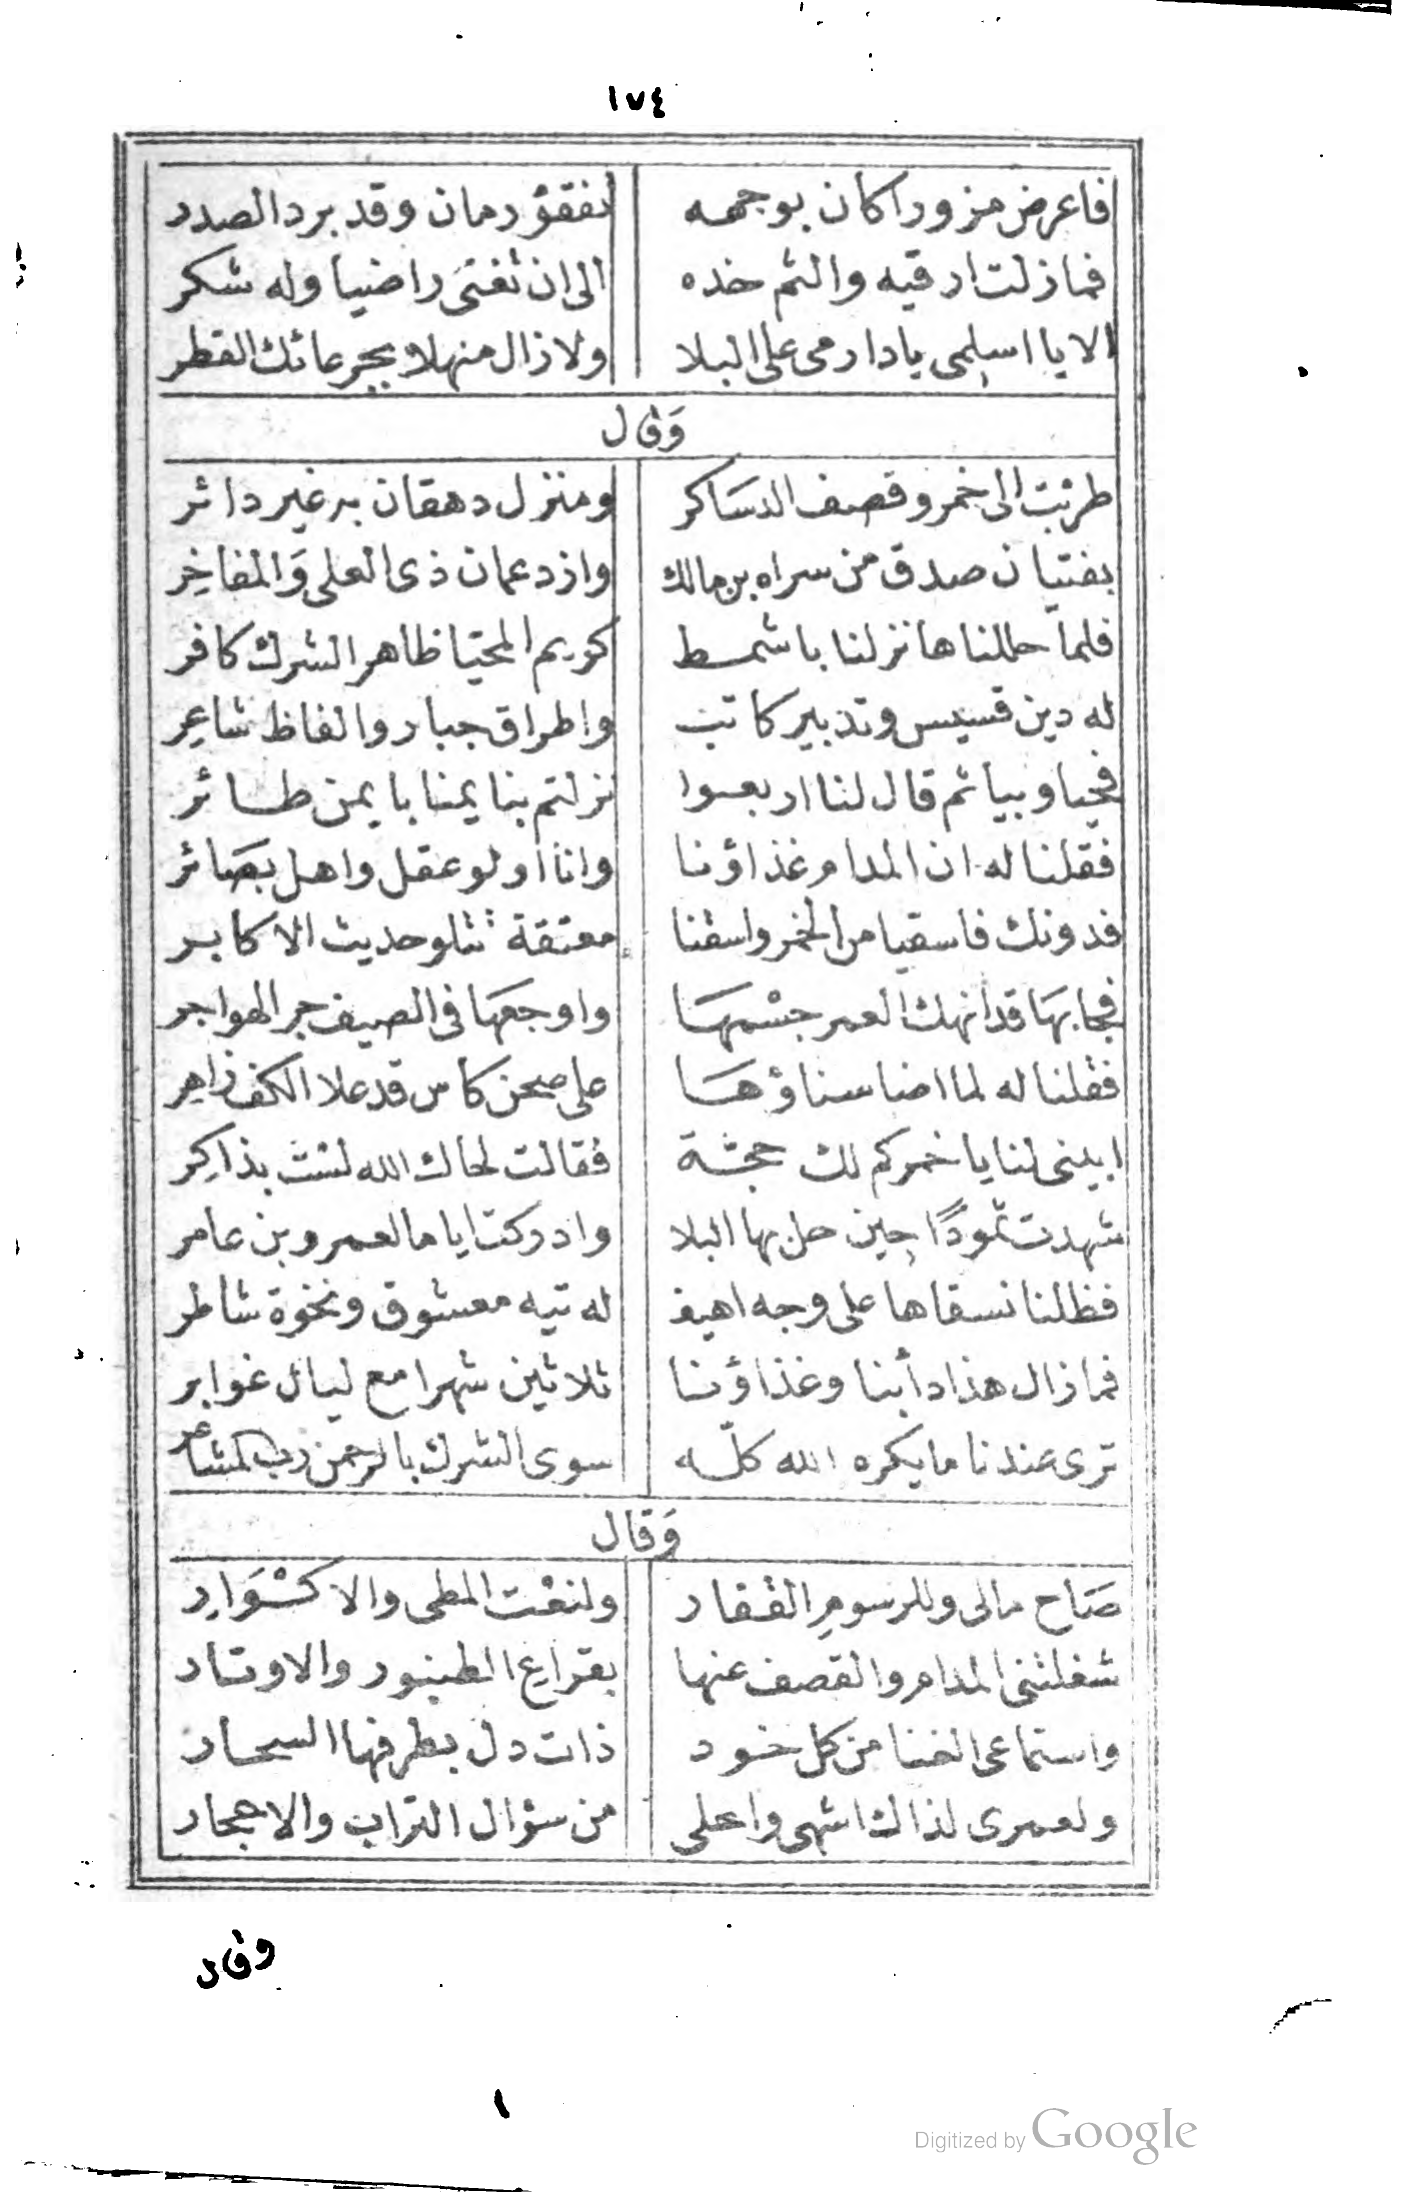 ١٧٤
فاعرض مزورا كان بوجهه تفقؤ رمان وقد برد الصدد
فما زلت ارقيه والثم خده الى ان تغنى راضيا وله شكر
الا يا اسلمى يا دار مى على البلا ولا زال منهلا بجرعائك القطر
وقال
طربت الى خمر وقصف الدساكر ومنزل دهقان به غير دائر
بفتيان صدق من سراه بن مالك وازد عمان ذى العلى والمفاخر
فلما حللناها نزلنا باشمط كريم المحيا ظاهر الشرك كافر
له دين قسيس وتدبير كاتب واطراق جبار والفاظ شاعر
فحيا وبيا ثم قال لنا اربعوا نزلتم بنا يمنا بايمن طائر
فقلنا له ان المدام غذاؤنا وانا اولو عقل واهل بصائر
فدونك فاسقيا من الخمر واسقنا معتقة تتلو حديث الاكابر
فجا بها قد انهك العمر جسمها واوجعها فى الصيف حر الهواجر
فقلنا له لما اضا سناؤها على صحن كاس قد علا الكف زاهر
ابينى لنا يا خمر كم لك حجة فقالت لحاك الله لست بذاكر
شهدت ثمودًا حين حل بها البلا وادركت اياما لعمرو بن عامر
فظلنا نسقاها على وجه اهيف له تيه معشوق ونخوة شاطر
فما زال هذا دأبنا وغذاؤنا ثلاثين شهرا مع ليال غوابر
ترى عندنا ما يكره الله كلّه سوى الشرك بالرحمن رب المشاعر
وقال
صاح مالى وللرسوم القفار ولنعت المطى والاكوار
شغلتنى المدام والقصف عنها بقراع الطنبور والاوتار
واستماعى الغنا من كل خود ذات دل بطرفها السحار
ولعمرى لذاك اشهى واحلى من سؤال التراب والاحجار
وقال
١
Digitized by Google